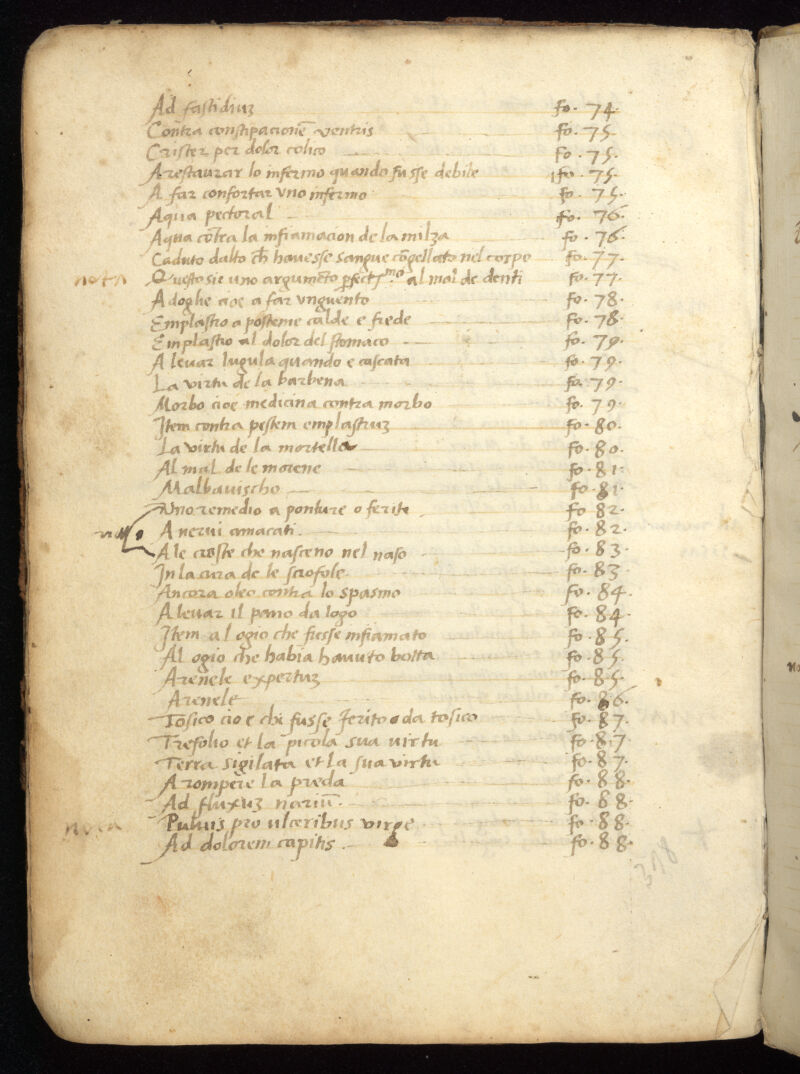 Ad fastidiuz fo. 74.
Contra constipacionē ventris fo. 75.
Crister per dolor colico fo. 75.
A restaurar lo infermo quando fusse debile fo. 75.
A far confortar uno infermo fo. 75.
Aqua pectoral fo. 76.
Aqua cōtra la infiamacion de la milza fo. 76.
Caduto dalto ch̄ havesse sangue cōgellato nel corpo fo. 77.
nota Questo sie uno argumēto pfectismo al mal de denti fo. 77.
A doghe cioe a far unguento fo. 78.
Emplastro a posteme calde e frede fo. 78.
Emplastro al dolor del stomaco fo. 79.
A levar lugula quando e cascata fo. 79.
La virtu de la barbena fo. 79.
Morbo cioe medicina contra morbo fo. 79.
Item contra pestem emplastruz fo. 80.
La virtu de la mortella fo. 80.
Al mal de le morene fo. 81.
Malbavischo fo. 81.
Uno remedio a ponture o ferite fo. 82.
A nervi amacati fo. 82.
A le croste che nasceno nel naso fo. 83.
In la cura de le scrofole fo. 83.
Ancora oleo contra lo spasmo fo. 84.
A levar il pano da logo fo. 84.
Item al ogio che fusse infiamato fo. 85.
Al ogio che habia havuto botta fo. 85.
Arenele expertuz fo. 85.
Arenele fo. 86.
Tosico cio e chi fusse ferito da tosico fo. 87.
Trefolio et la picola sua virtu fo. 87
Terra sigilata et la sua virtu fo. 87.
A rompere la preda fo. 88.
Ad fluxuz nariū. fo. 88.
nota Pulvis pro ulceribus virge fo. 88.
Ad dolorem capitis. fo. 88.